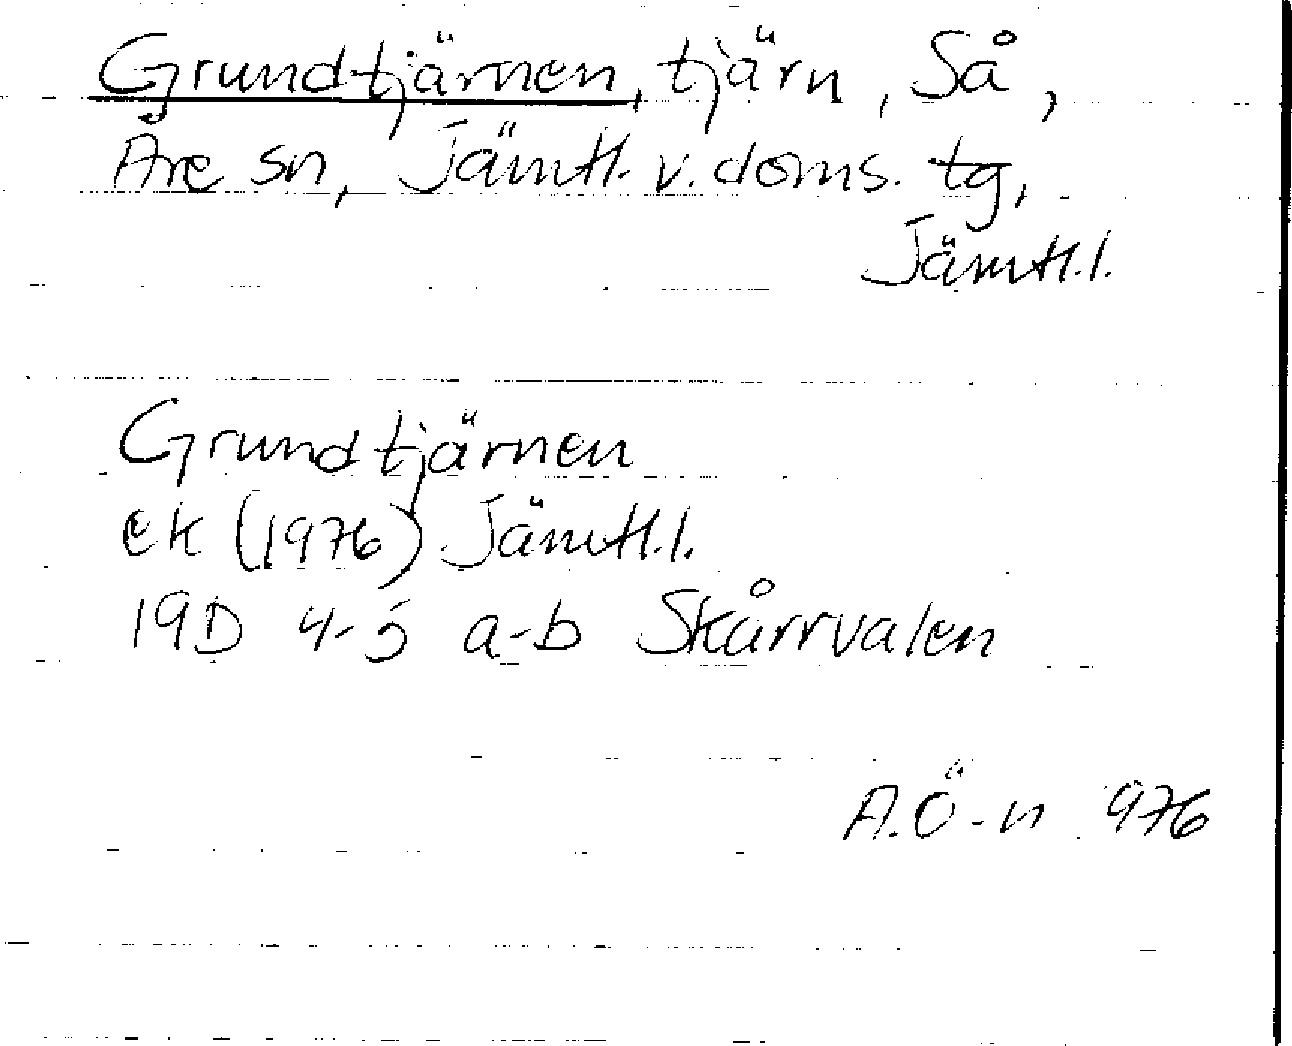 Grundtjärnen, tjärn, Så,
Åre sn, Jämtl. v. doms. tg,
Jämtl.l.
Grundtjärnen
ek (1976) Jämtl.l.
19D 4-5 a-b Skårrvalen
A.Ö-n 976